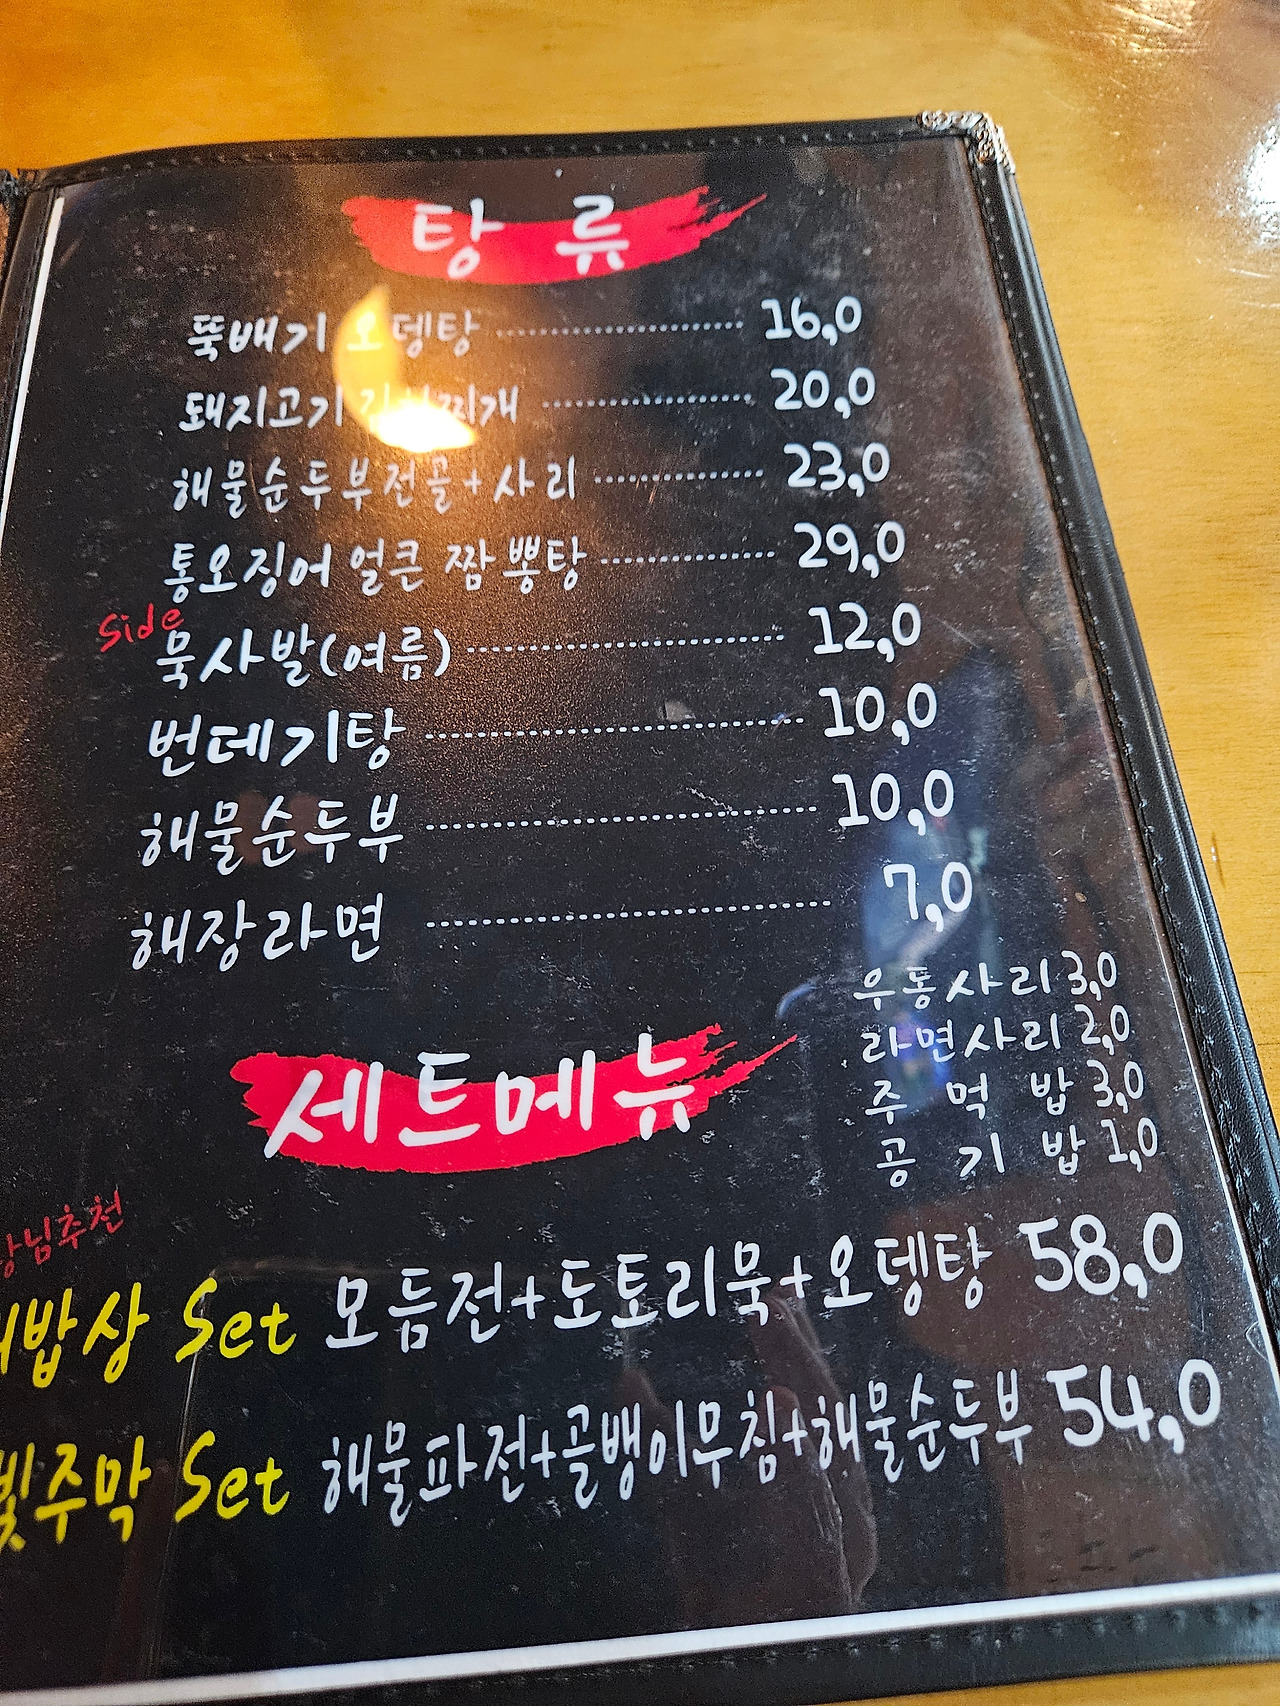 탕 류
뚝배기 오뎅탕 16,0
돼지고기 김치찌개 20,0
해물순두부전골+사리 23,0
통오징어 얼큰 짬뽕탕 29,0
Side
묵사발(여름) 12,0
번데기탕 10,0
해물순두부 10,0
해장라면 7,0
우동사리 3,0
라면사리 2,0
주 먹 밥 3,0
공 기 밥 1,0
세트메뉴
님추천
밥상 Set 모듬전+도토리묵+오뎅탕 58,0
빛주막 Set 해물파전+골뱅이무침+해물순두부 54,0